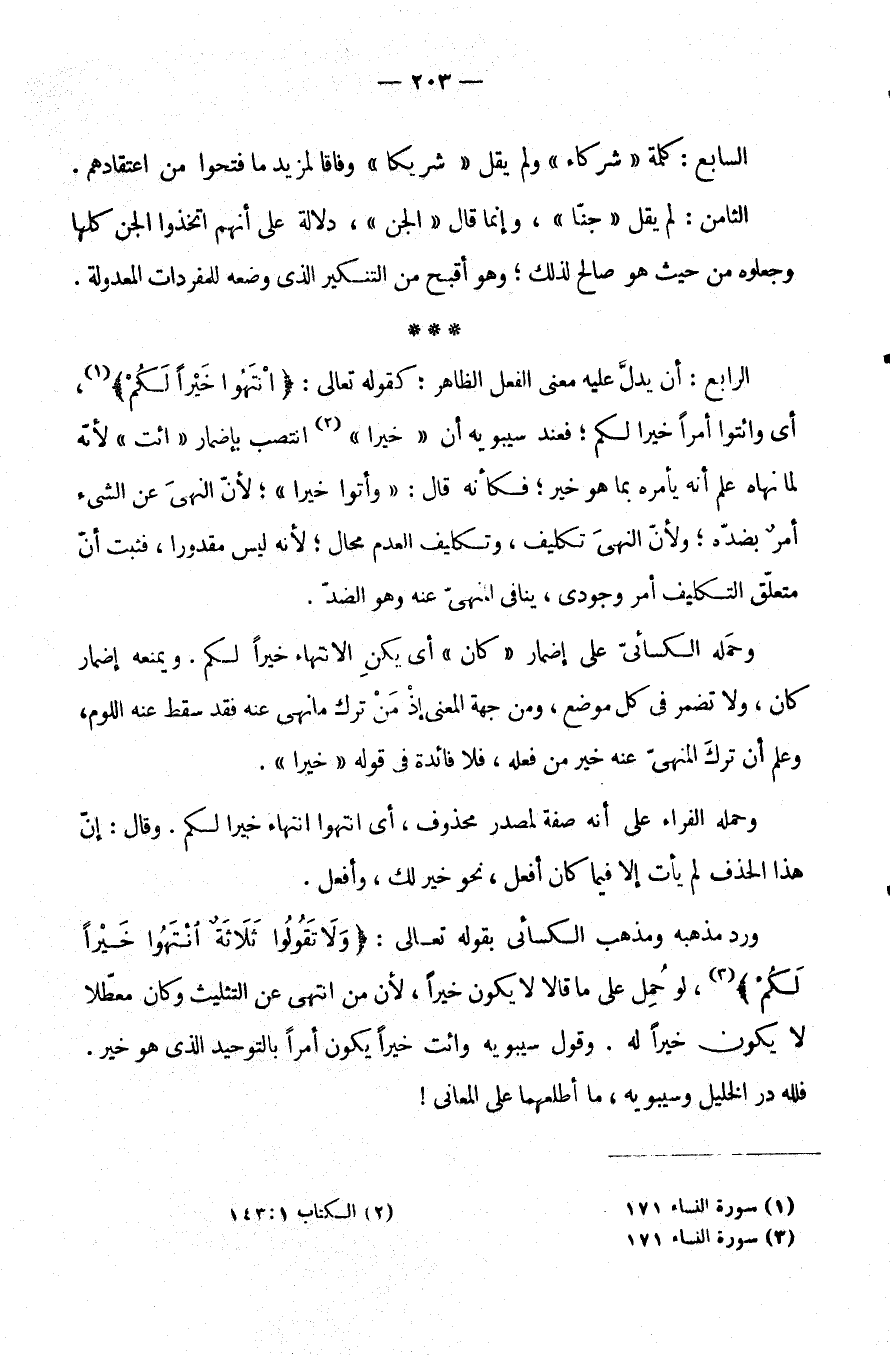 — ٢٠٣ —
السابع : كلمة « شركاء » ولم يقل « شريكا » وفاقا لمزيد ما فتحوا من اعتقادهم .
الثامن : لم يقل « جنّا » ، وإنما قال « الجن » ، دلالة على أنهم اتخذوا الجن كلها
وجعلوه من حيث هو صالح لذلك ؛ وهو أقبح من التنكير الذى وضعه للمفردات المعدولة .
***
الرابع : أن يدلَّ عليه معنى الفعل الظاهر : كقوله تعالى : ﴿ انْتَهُوا خَيْراً لَكُمْ ﴾(١)،
أى وائتوا أمراً خيرا لكم ؛ فعند سيبويه أن « خيرا »(٢) انتصب بإضمار « ائت » لأنّه
لما نهاه علم أنه يأمره بما هو خير ؛ فكأنه قال : « وأتوا خيرا » ؛ لأنّ النهىَ عن الشىء
أمرٌ بضدّه ؛ ولأنّ النهىَ تكليف ، وتكليف العدم محال ؛ لأنه ليس مقدورا ، فثبت أنّ
متعلّق التكليف أمر وجودى ، ينافى المنهىّ عنه وهو الضدّ .
وحَمَله الكسائىّ على إضمار « كان » أى يكنِ الانتهاء خيراً لكم . ويمنعه إضمار
كان ، ولا تضمر فى كل موضع ، ومن جهة المعنى إذْ مَنْ ترك مانهى عنه فقد سقط عنه اللوم،
وعلم أن تركَ المنهىّ عنه خير من فعله ، فلا فائدة فى قوله « خيرا » .
وحمله الفراء على أنه صفة لمصدر محذوف ، أى انتهوا انتهاء خيرا لكم . وقال : إنّ
هذا الحذف لم يأت إلا فيما كان أفعل ، نحو خير لك ، وأفعل .
ورد مذهبه ومذهب الكسائى بقوله تعالى : ﴿ وَلَا تَقُولُوا ثَلَاثَةٌ انْتَهُوا خَيْراً
لَكُمْ ﴾(٣) ، لو حُمِل على ما قالا لا يكون خيراً ، لأن من انتهى عن التثليث وكان معطّلا
لا يكون خيراً له . وقول سيبويه وائت خيراً يكون أمراً بالتوحيد الذى هو خير .
فلله در الخليل وسيبويه ، ما أطلعهما على المعانى !
(١) سورة النساء ١٧١
(٢) الكتاب ١ : ١٤٣
(٣) سورة النساء ١٧١